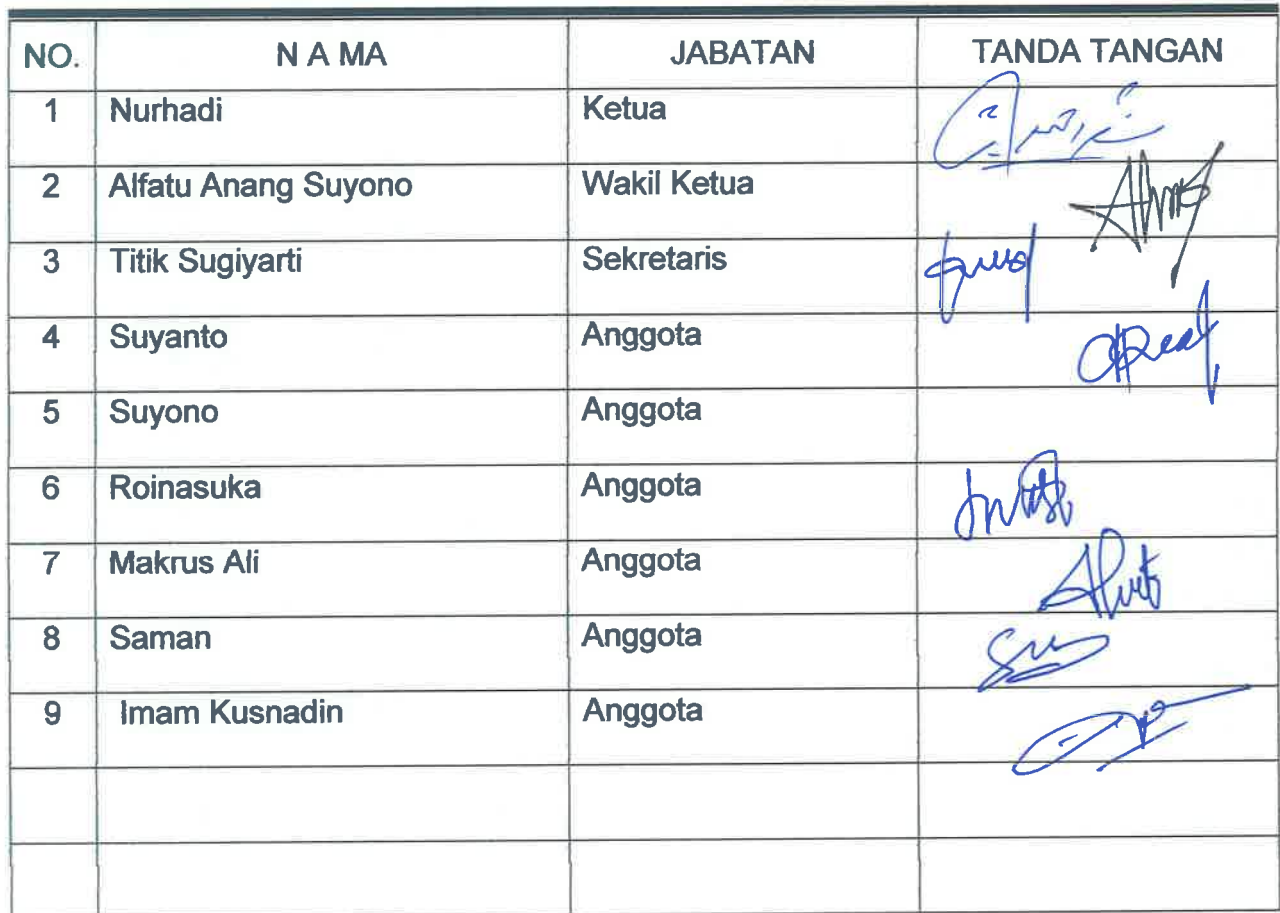 NO. N A MA JABATAN TANDA TANGAN
1 Nurhadi Ketua
2 Alfatu Anang Suyono Wakil Ketua
3 Titik Sugiyarti Sekretaris
4 Suyanto Anggota
5 Suyono Anggota
6 Roinasuka Anggota
7 Makrus Ali Anggota
8 Saman Anggota
9 Imam Kusnadin Anggota